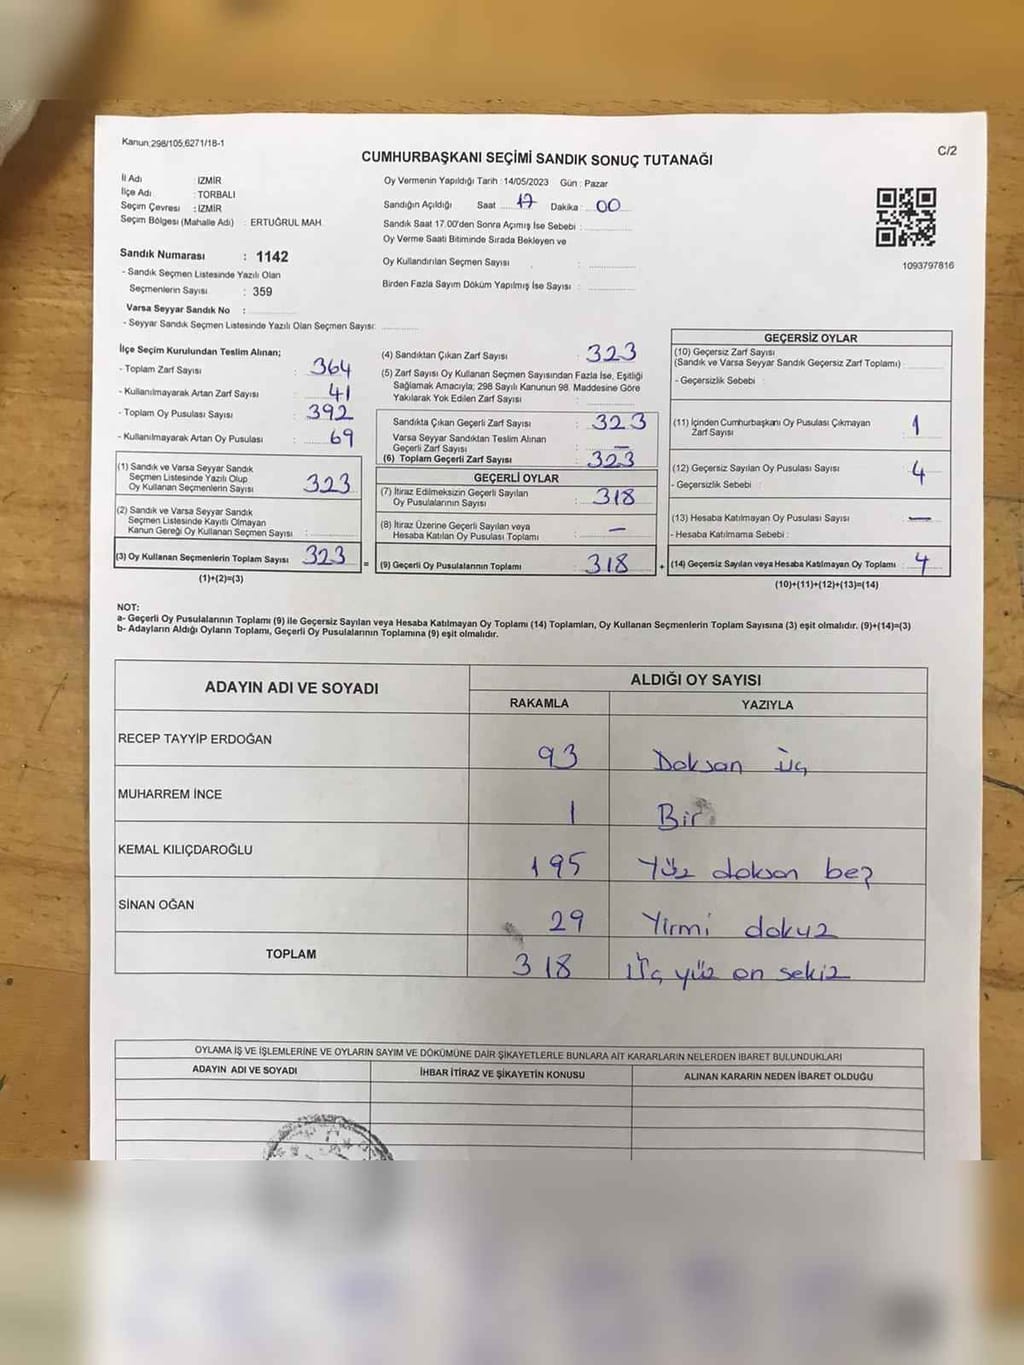 Kanun:298/105,6271/18-1
C/2
CUMHURBAŞKANI SEÇİMİ SANDIK SONUÇ TUTANAĞI
İl Adı : İZMİR
İlçe Adı : TORBALI
Seçim Çevresi : İZMİR
Seçim Bölgesi (Mahalle Adı) : ERTUĞRUL MAH.
Sandık Numarası : 1142
- Sandık Seçmen Listesinde Yazılı Olan
Seçmenlerin Sayısı : 359
Varsa Seyyar Sandık No :
- Seyyar Sandık Seçmen Listesinde Yazılı Olan Seçmen Sayısı:
Oy Vermenin Yapıldığı Tarih : 14/05/2023 Gün : Pazar
Sandığın Açıldığı Saat 17 Dakika : 00
Sandık Saat 17.00'den Sonra Açımış İse Sebebi :
Oy Verme Saati Bitiminde Sırada Bekleyen ve
Oy Kullandırılan Seçmen Sayısı :
Birden Fazla Sayım Döküm Yapılmış İse Sayısı :
1093797816
İlçe Seçim Kurulundan Teslim Alınan;
- Toplam Zarf Sayısı : 364
- Kullanılmayarak Artan Zarf Sayısı : 41
- Toplam Oy Pusulası Sayısı : 392
- Kullanılmayarak Artan Oy Pusulası : 69
(1) Sandık ve Varsa Seyyar Sandık
Seçmen Listesinde Yazılı Olup
Oy Kullanan Seçmenlerin Sayısı : 323
(2) Sandık ve Varsa Seyyar Sandık
Seçmen Listesinde Kayıtlı Olmayan
Kanun Gereği Oy Kullanan Seçmen Sayısı :
(3) Oy Kullanan Seçmenlerin Toplam Sayısı : 323 =
(1)+(2)=(3)
(4) Sandıktan Çıkan Zarf Sayısı : 323
(5) Zarf Sayısı Oy Kullanan Seçmen Sayısından Fazla İse, Eşitliği
Sağlamak Amacıyla; 298 Sayılı Kanunun 98. Maddesine Göre
Yakılarak Yok Edilen Zarf Sayısı :
Sandıkta Çıkan Geçerli Zarf Sayısı : 323
Varsa Seyyar Sandıktan Teslim Alınan
Geçerli Zarf Sayısı : —
(6) Toplam Geçerli Zarf Sayısı : 323
GEÇERLİ OYLAR
(7) İtiraz Edilmeksizin Geçerli Sayılan
Oy Pusulalarının Sayısı : 318
(8) İtiraz Üzerine Geçerli Sayılan veya
Hesaba Katılan Oy Pusulası Toplamı : —
(9) Geçerli Oy Pusulalarının Toplamı : 318 +
GEÇERSİZ OYLAR
(10) Geçersiz Zarf Sayısı
(Sandık ve Varsa Seyyar Sandık Geçersiz Zarf Toplamı) :
- Geçersizlik Sebebi :
(11) İçinden Cumhurbaşkanı Oy Pusulası Çıkmayan
Zarf Sayısı : 1
(12) Geçersiz Sayılan Oy Pusulası Sayısı : 4
- Geçersizlik Sebebi :
(13) Hesaba Katılmayan Oy Pusulası Sayısı : —
- Hesaba Katılmama Sebebi :
(14) Geçersiz Sayılan veya Hesaba Katılmayan Oy Toplamı : 4
(10)+(11)+(12)+(13)=(14)
NOT:
a- Geçerli Oy Pusulalarının Toplamı (9) ile Geçersiz Sayılan veya Hesaba Katılmayan Oy Toplamı (14) Toplamları, Oy Kullanan Seçmenlerin Toplam Sayısına (3) eşit olmalıdır. (9)+(14)=(3)
b- Adayların Aldığı Oyların Toplamı, Geçerli Oy Pusulalarının Toplamına (9) eşit olmalıdır.
ADAYIN ADI VE SOYADI ALDIĞI OY SAYISI
RAKAMLA YAZIYLA
RECEP TAYYİP ERDOĞAN 93 Doksan üç
MUHARREM İNCE 1 Bir
KEMAL KILIÇDAROĞLU 195 Yüz doksan beş
SİNAN OĞAN 29 Yirmi dokuz
TOPLAM 318 Üç yüz on sekiz
OYLAMA İŞ VE İŞLEMLERİNE VE OYLARIN SAYIM VE DÖKÜMÜNE DAİR ŞİKAYETLERLE BUNLARA AİT KARARLARIN NELERDEN İBARET BULUNDUKLARI
ADAYIN ADI VE SOYADI İHBAR İTİRAZ VE ŞİKAYETİN KONUSU ALINAN KARARIN NEDEN İBARET OLDUĞU